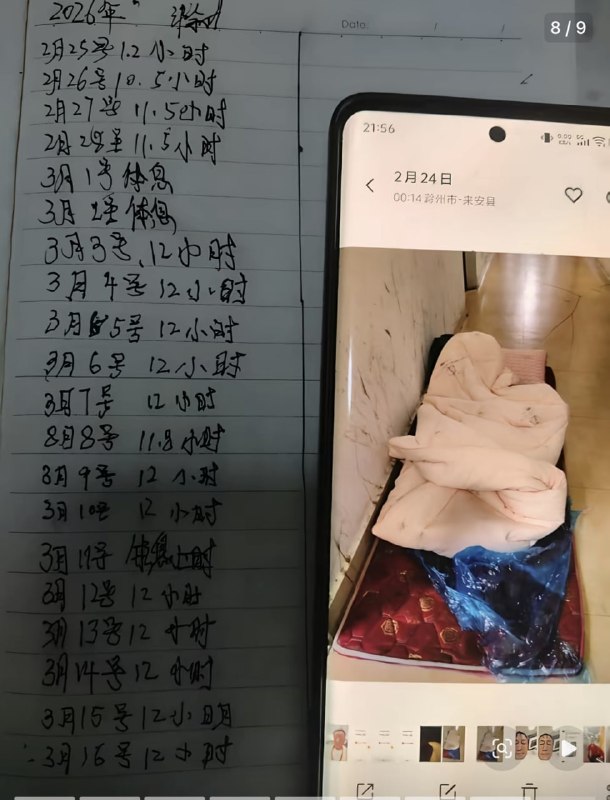 2026年
Date:
8/9
2月25号12小时
2月26号10.5小时
2月27号 11.5小时
2月28号 11.5小时
3月1号休息
3月2号休息
3月3号、12小时
3月4号12小时
3月5号 12小时
3月6号 12小时
3月7号 12小时
8月8号 11.8小时
3月9号 12小时
3月10号 12小时
3月11号 休息
3月12号12小时
3月13号12小时
3月14号12小时
3月15号12小时
3月16号12小时
21:56
2月24日
00:14 滁州市-来安县